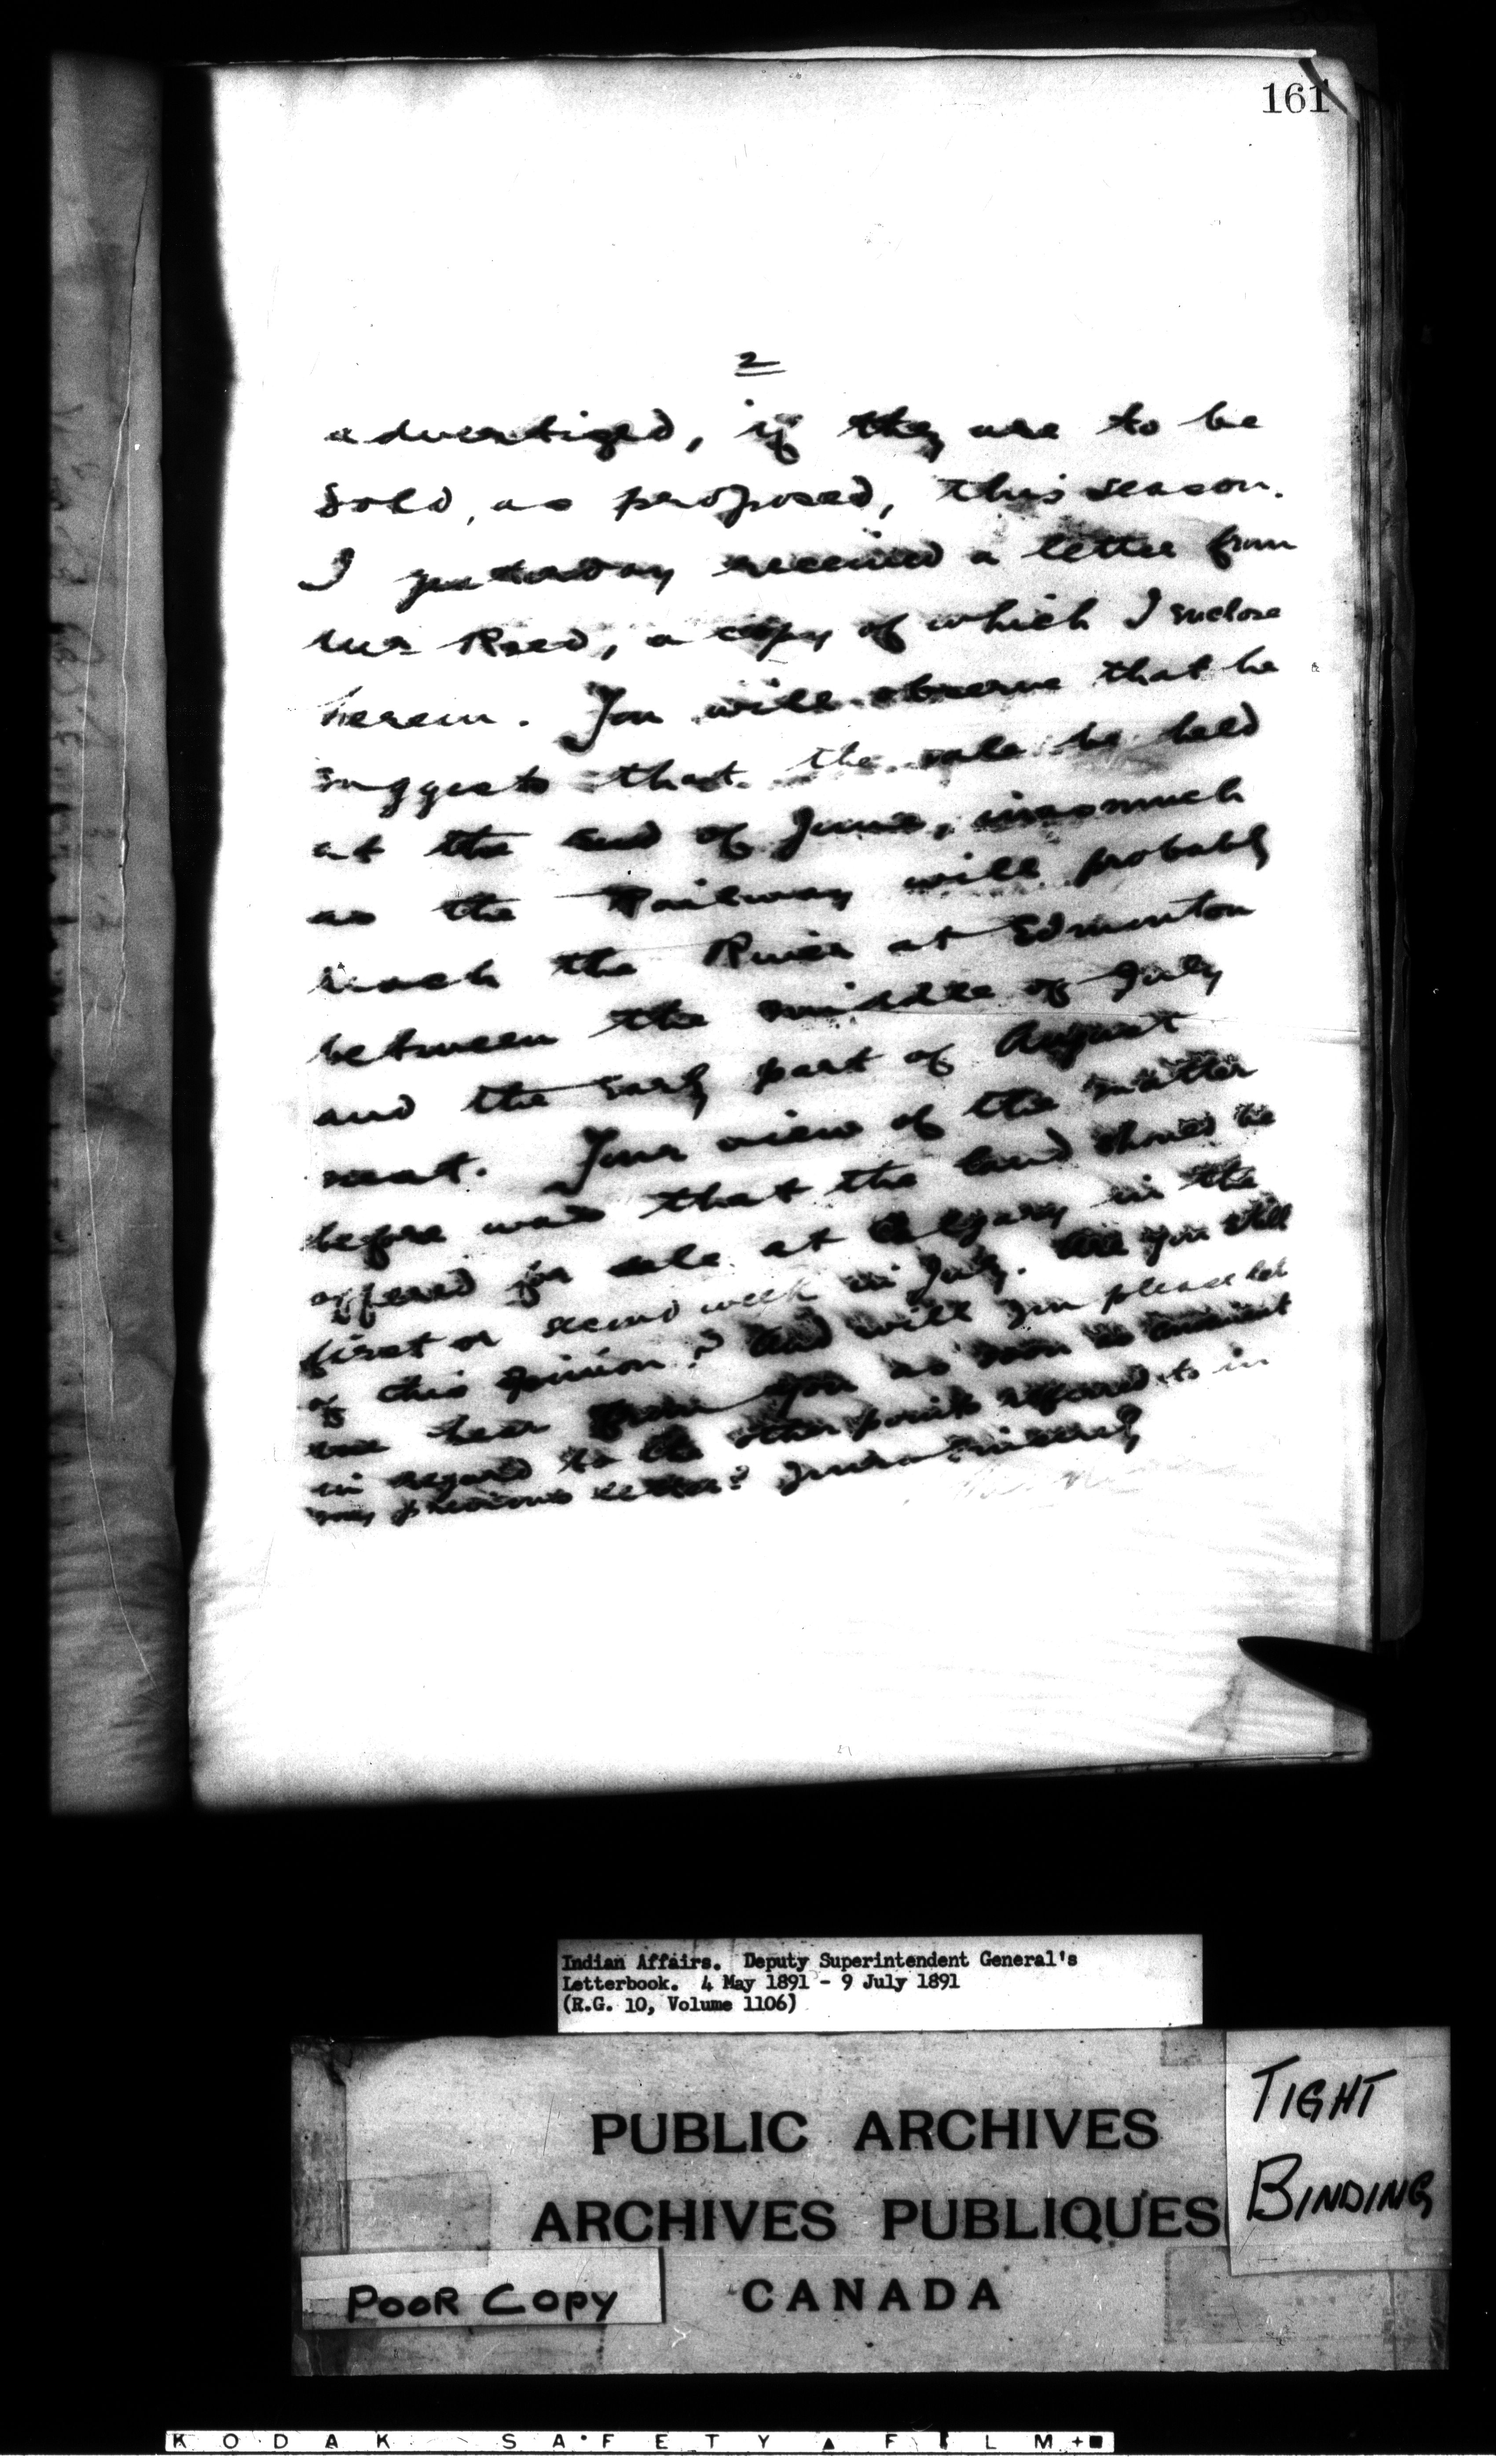 161
2
advertized, if they are to be
sold, as proposed, this season.
I yesterday received a letter from
Mr Reed, a copy of which I enclose
herein. You will observe that he
suggests that the sale be held
at the end of June, inasmuch
as the Railway will probably
reach the River at Edmonton
between the middle of July
and the early part of August
next. Your view of the matter
before was that the land should be
offered for sale at Calgary in the
first or second week in July. Are you still
of this opinion? And will you please let
me hear from you as soon as convenient
in regard to the other points referred to in
my previous letter? Yours sincerely
Indian Affairs. Deputy Superintendent General's
Letterbook. 4 May 1891 - 9 July 1891
(R.G. 10, Volume 1106)
PUBLIC ARCHIVES
ARCHIVES PUBLIQUES
CANADA
TIGHT
BINDING
POOR COPY
KODAK SAFETY FILM